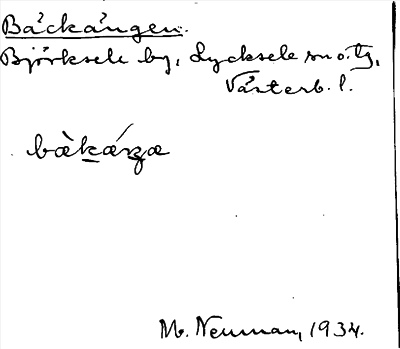 Bäckängen.
Björksele by, Lycksele sn o. tg,
Västerb. l.
bæ̀kǽŋa
M. Neuman, 1934.